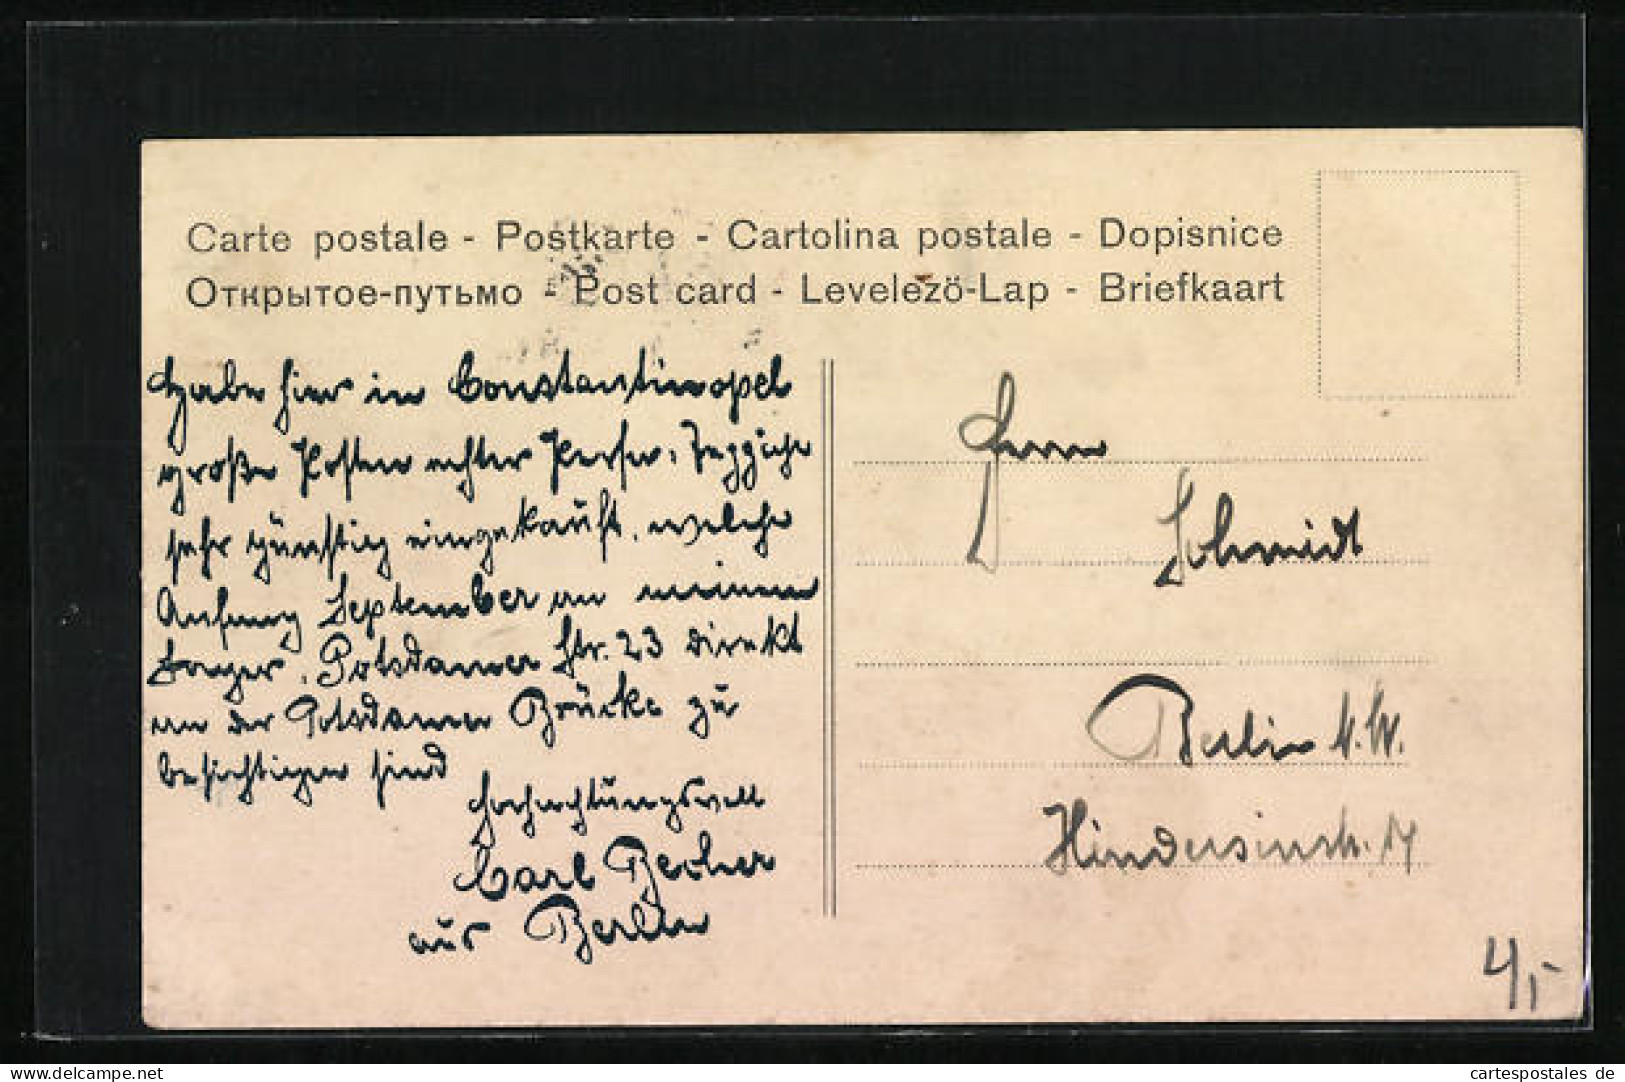 Carte postale - Postkarte - Cartolina postale - Dopisnice
Открытое-путьмо - Post card - Levelező-Lap - Briefkaart
Habe hier in Constantinopel
große Posten echter Perser-Teppiche
sehr günstig eingekauft, welche
Anfang September an meinem
Lager, Potsdamer Str. 23 direkt
an der Potsdamer Brücke zu
besichtigen sind
Hochachtungsvoll
Carl Becher
aus Berlin
Herrn
Schmidt
Berlin N.W.
Hindersinstr. 14
4,-
The meaning of pictures
cartespostales de